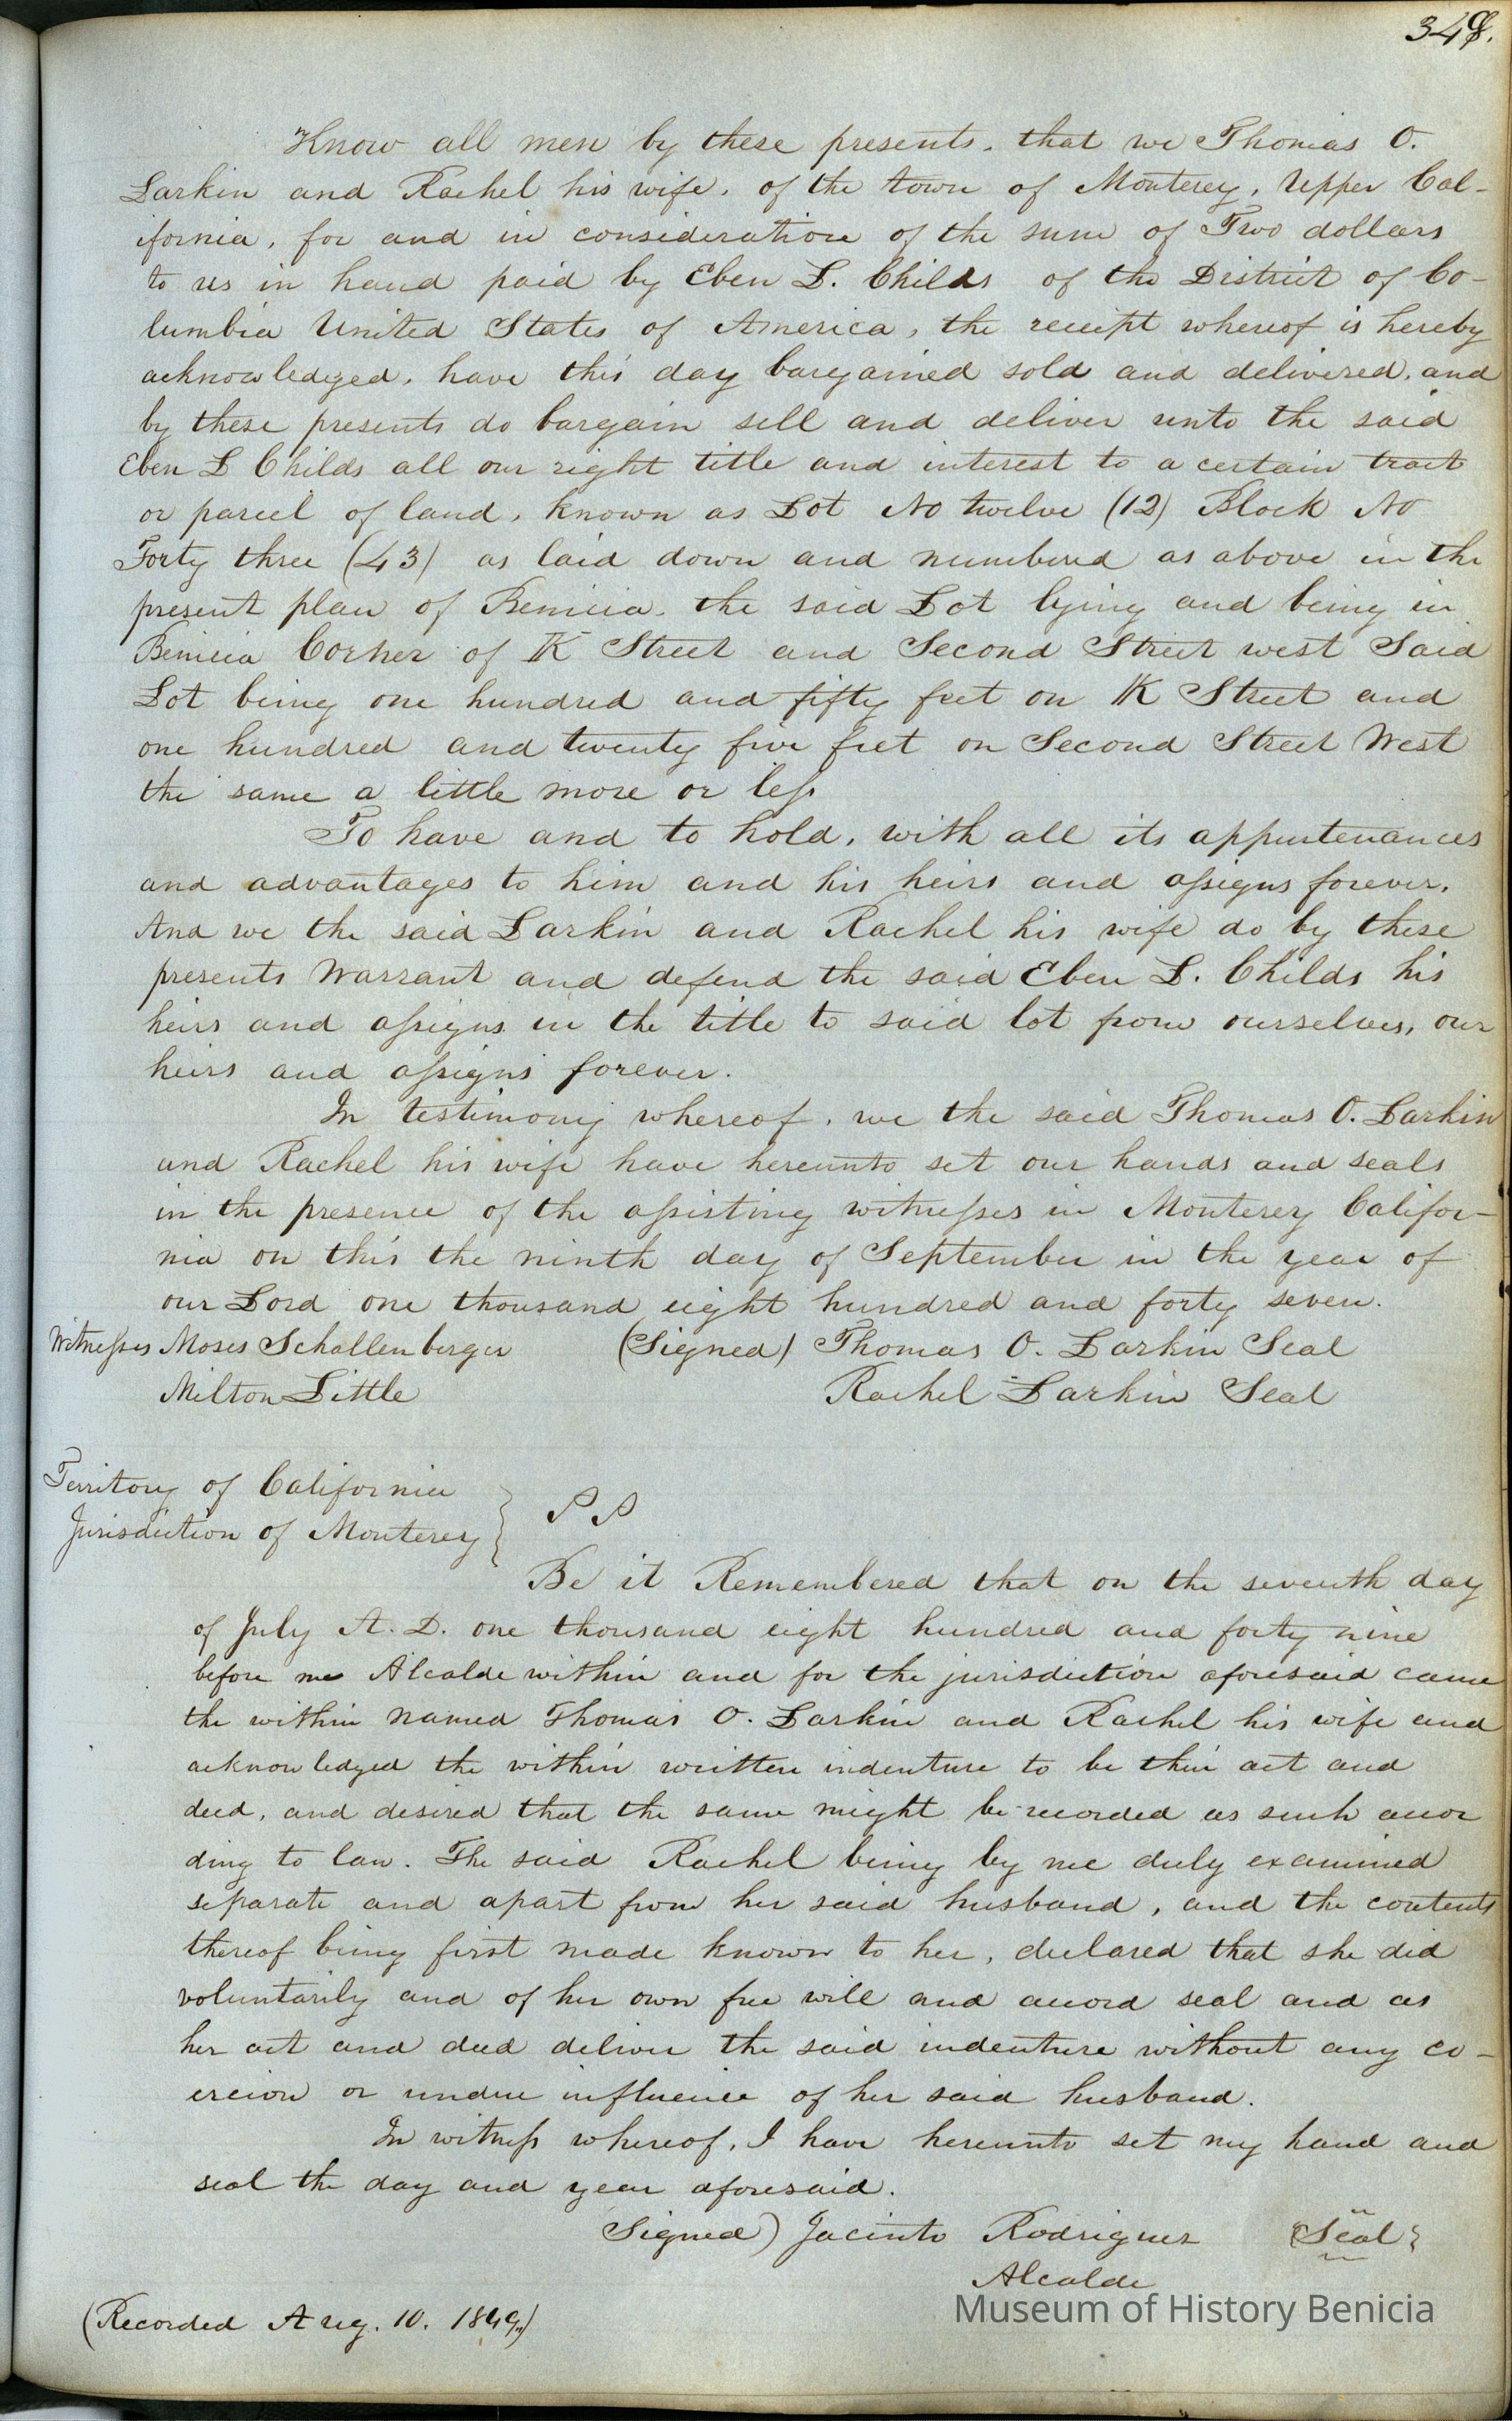 348.
Know all men by these presents, that we Thomas O.
Larkin and Rachel his wife, of the town of Monterey, Upper Cal-
ifornia, for and in consideration of the sum of Two dollars
to us in hand paid by Eben L. Childs of the District of Co-
lumbia United States of America, the receipt whereof is hereby
acknowledged, have this day bargained sold and delivered, and
by these presents do bargain sell and deliver unto the said
Eben L Childs all our right title and interest to a certain tract
or parcel of land, known as Lot No twelve (12) Block No
Forty three (43) as laid down and numbered as above in the
present plan of Benicia. the said Lot lying and being in
Benicia Corner of K Street and Second Street west Said
Lot being one hundred and fifty feet on K Street and
one hundred and twenty five feet on Second Street West
the same a little more or less
To have and to hold, with all its appurtenances
and advantages to him and his heirs and assigns forever.
And we the said Larkin and Rachel his wife do by these
presents Warrant and defend the said Eben L. Childs his
heirs and assigns in the title to said lot from ourselves, our
heirs and assigns forever.
In testimony whereof, we the said Thomas O. Larkin
and Rachel his wife have hereunto set our hands and seals
in the presence of the assisting witnesses in Monterey Califor-
nia on this the ninth day of September in the year of
our Lord one thousand eight hundred and forty seven.
Witnesses Moses Schallenberger (Signed) Thomas O. Larkin Seal
Milton Little Rachel Larkin Seal
Territory of California
Jurisdiction of Monterey } SS
Be it Remembered that on the seventh day
of July A. D. one thousand eight hundred and forty nine
before me Alcalde within and for the jurisdiction aforesaid came
the within named Thomas O. Larkin and Rachel his wife and
acknowledged the within written indenture to be their act and
deed, and desired that the same might be recorded as such accor
ding to law. The said Rachel being by me duly examined
separate and apart from her said husband, and the contents
thereof being first made known to her, declared that she did
voluntarily and of her own free will and accord seal and as
her act and deed deliver the said indenture without any co-
ercion or undue influence of her said husband.
In witness whereof, I have hereunto set my hand and
seal the day and year aforesaid.
Signed) Jacinto Rodriguez {Seal}
Alcalde
(Recorded Aug. 10. 1849.)
Museum of History Benicia